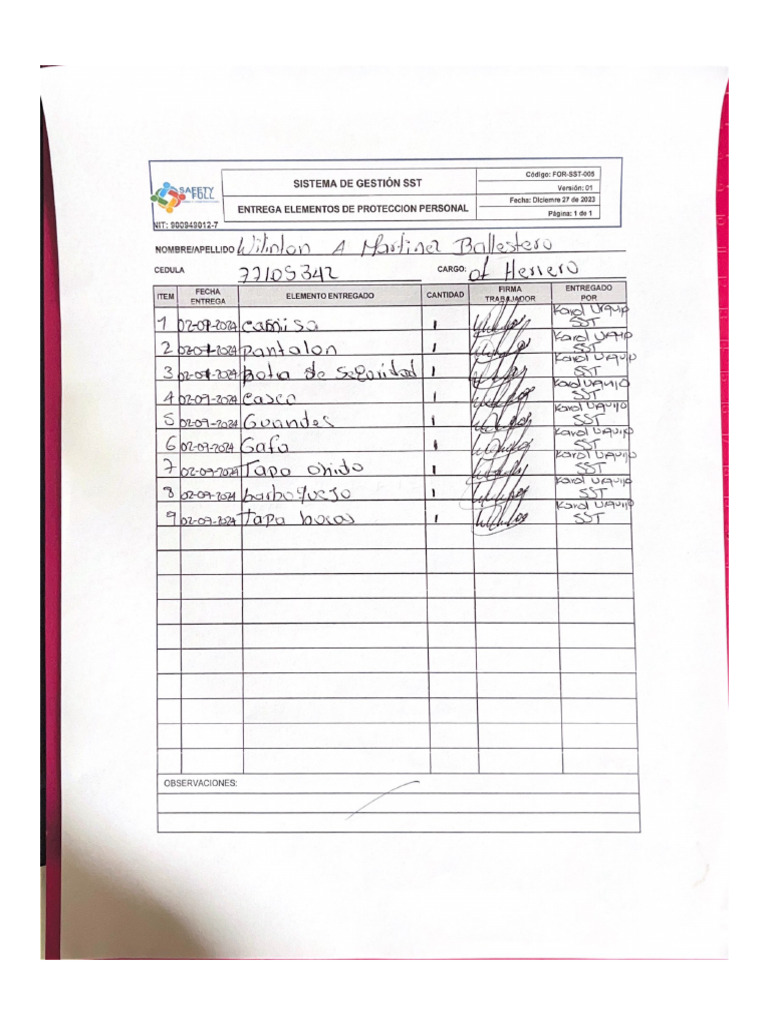 SAFETY
FULL
NIT: 900949012-7
SISTEMA DE GESTIÓN SST
ENTREGA ELEMENTOS DE PROTECCION PERSONAL
Código: FOR-SST-005
Versión: 01
Fecha: Diciemre 27 de 2023
Página: 1 de 1
NOMBRE/APELLIDO Wilinton A Martinez Ballestero
CEDULA 77105342 CARGO: of Herrero
ITEM FECHA ENTREGA ELEMENTO ENTREGADO CANTIDAD FIRMA TRABAJADOR ENTREGADO POR
1 02-09-2024 camisa 1 Karol Urquijo SST
2 02-09-2024 pantalon 1 Karol Urquijo SST
3 02-09-2024 bota de seguridad 1 Karol Urquijo SST
4 02-09-2024 casco 1 Karol Urquijo SST
5 02-09-2024 Guandes 1 Karol Urquijo SST
6 02-09-2024 Gafa 1 Karol Urquijo SST
7 02-09-2024 Tapa ohido 1 Karol Urquijo SST
8 02-09-2024 barboquejo 1 Karol Urquijo SST
9 02-09-2024 Tapa bocas 1 Karol Urquijo SST
OBSERVACIONES: